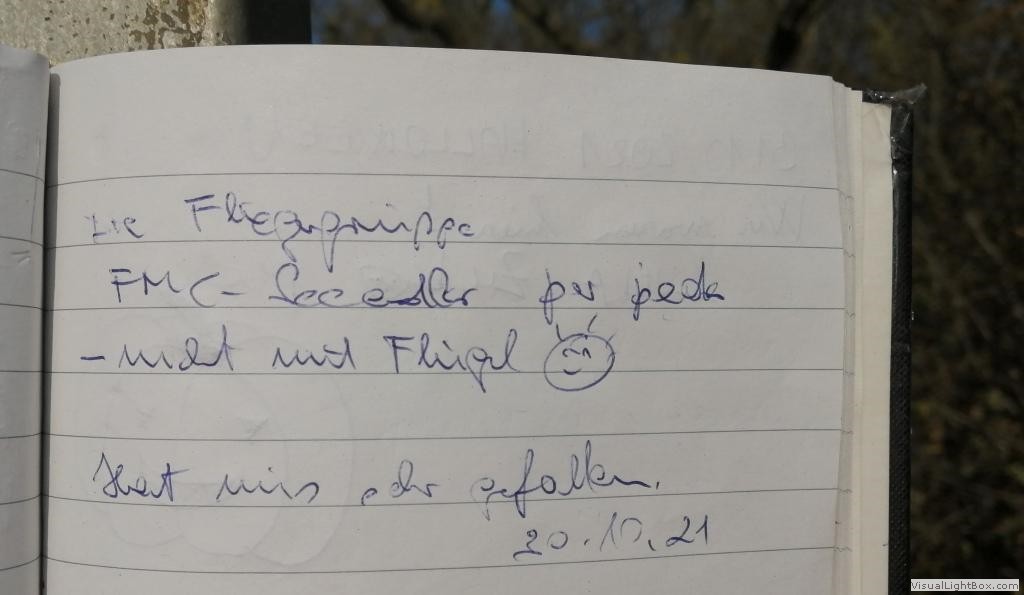 Die Fliegergruppe
FMC - Seeadler per pedes
- nicht mit Flügel
Hat uns sehr gefallen.
30.10.21
VisualLightBox.com